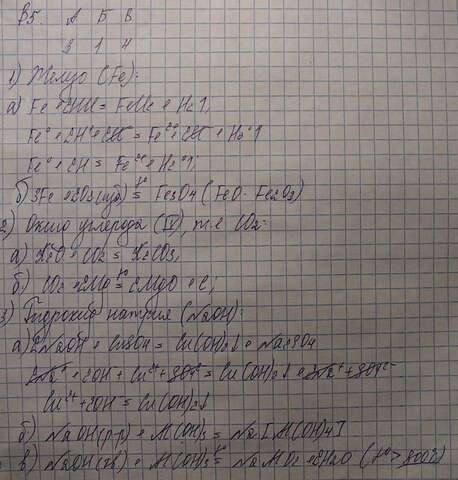 В5. А Б В
3 1 4
1) Железо (Fe):
а) Fe + 2HCl = FeCl2 + H2↑;
Fe⁰ + 2H⁺ + 2Cl⁻ = Fe²⁺ + 2Cl⁻ + H2⁰↑
Fe⁰ + 2H⁺ = Fe²⁺ + H2⁰↑;
б) 3Fe + 2O2 (изб) t⁰= Fe3O4 (FeO·Fe2O3)
2) Оксид углерода (IV), т.е CO2:
а) K2O + CO2 = K2CO3;
б) CO2 + 2Mg t⁰= 2MgO + C;
3) Гидроксид натрия (NaOH):
а) 2NaOH + CuSO4 = Cu(OH)2↓ + Na2SO4
2Na⁺ + 2OH⁻ + Cu²⁺ + SO4²⁻ = Cu(OH)2↓ + 2Na⁺ + SO4²⁻
Cu²⁺ + 2OH⁻ = Cu(OH)2↓
б) NaOH (р-р) + Al(OH)3 = Na[Al(OH)4]
в) NaOH (тв) + Al(OH)3 t⁰= NaAlO2 + 2H2O (t⁰>800⁰C)